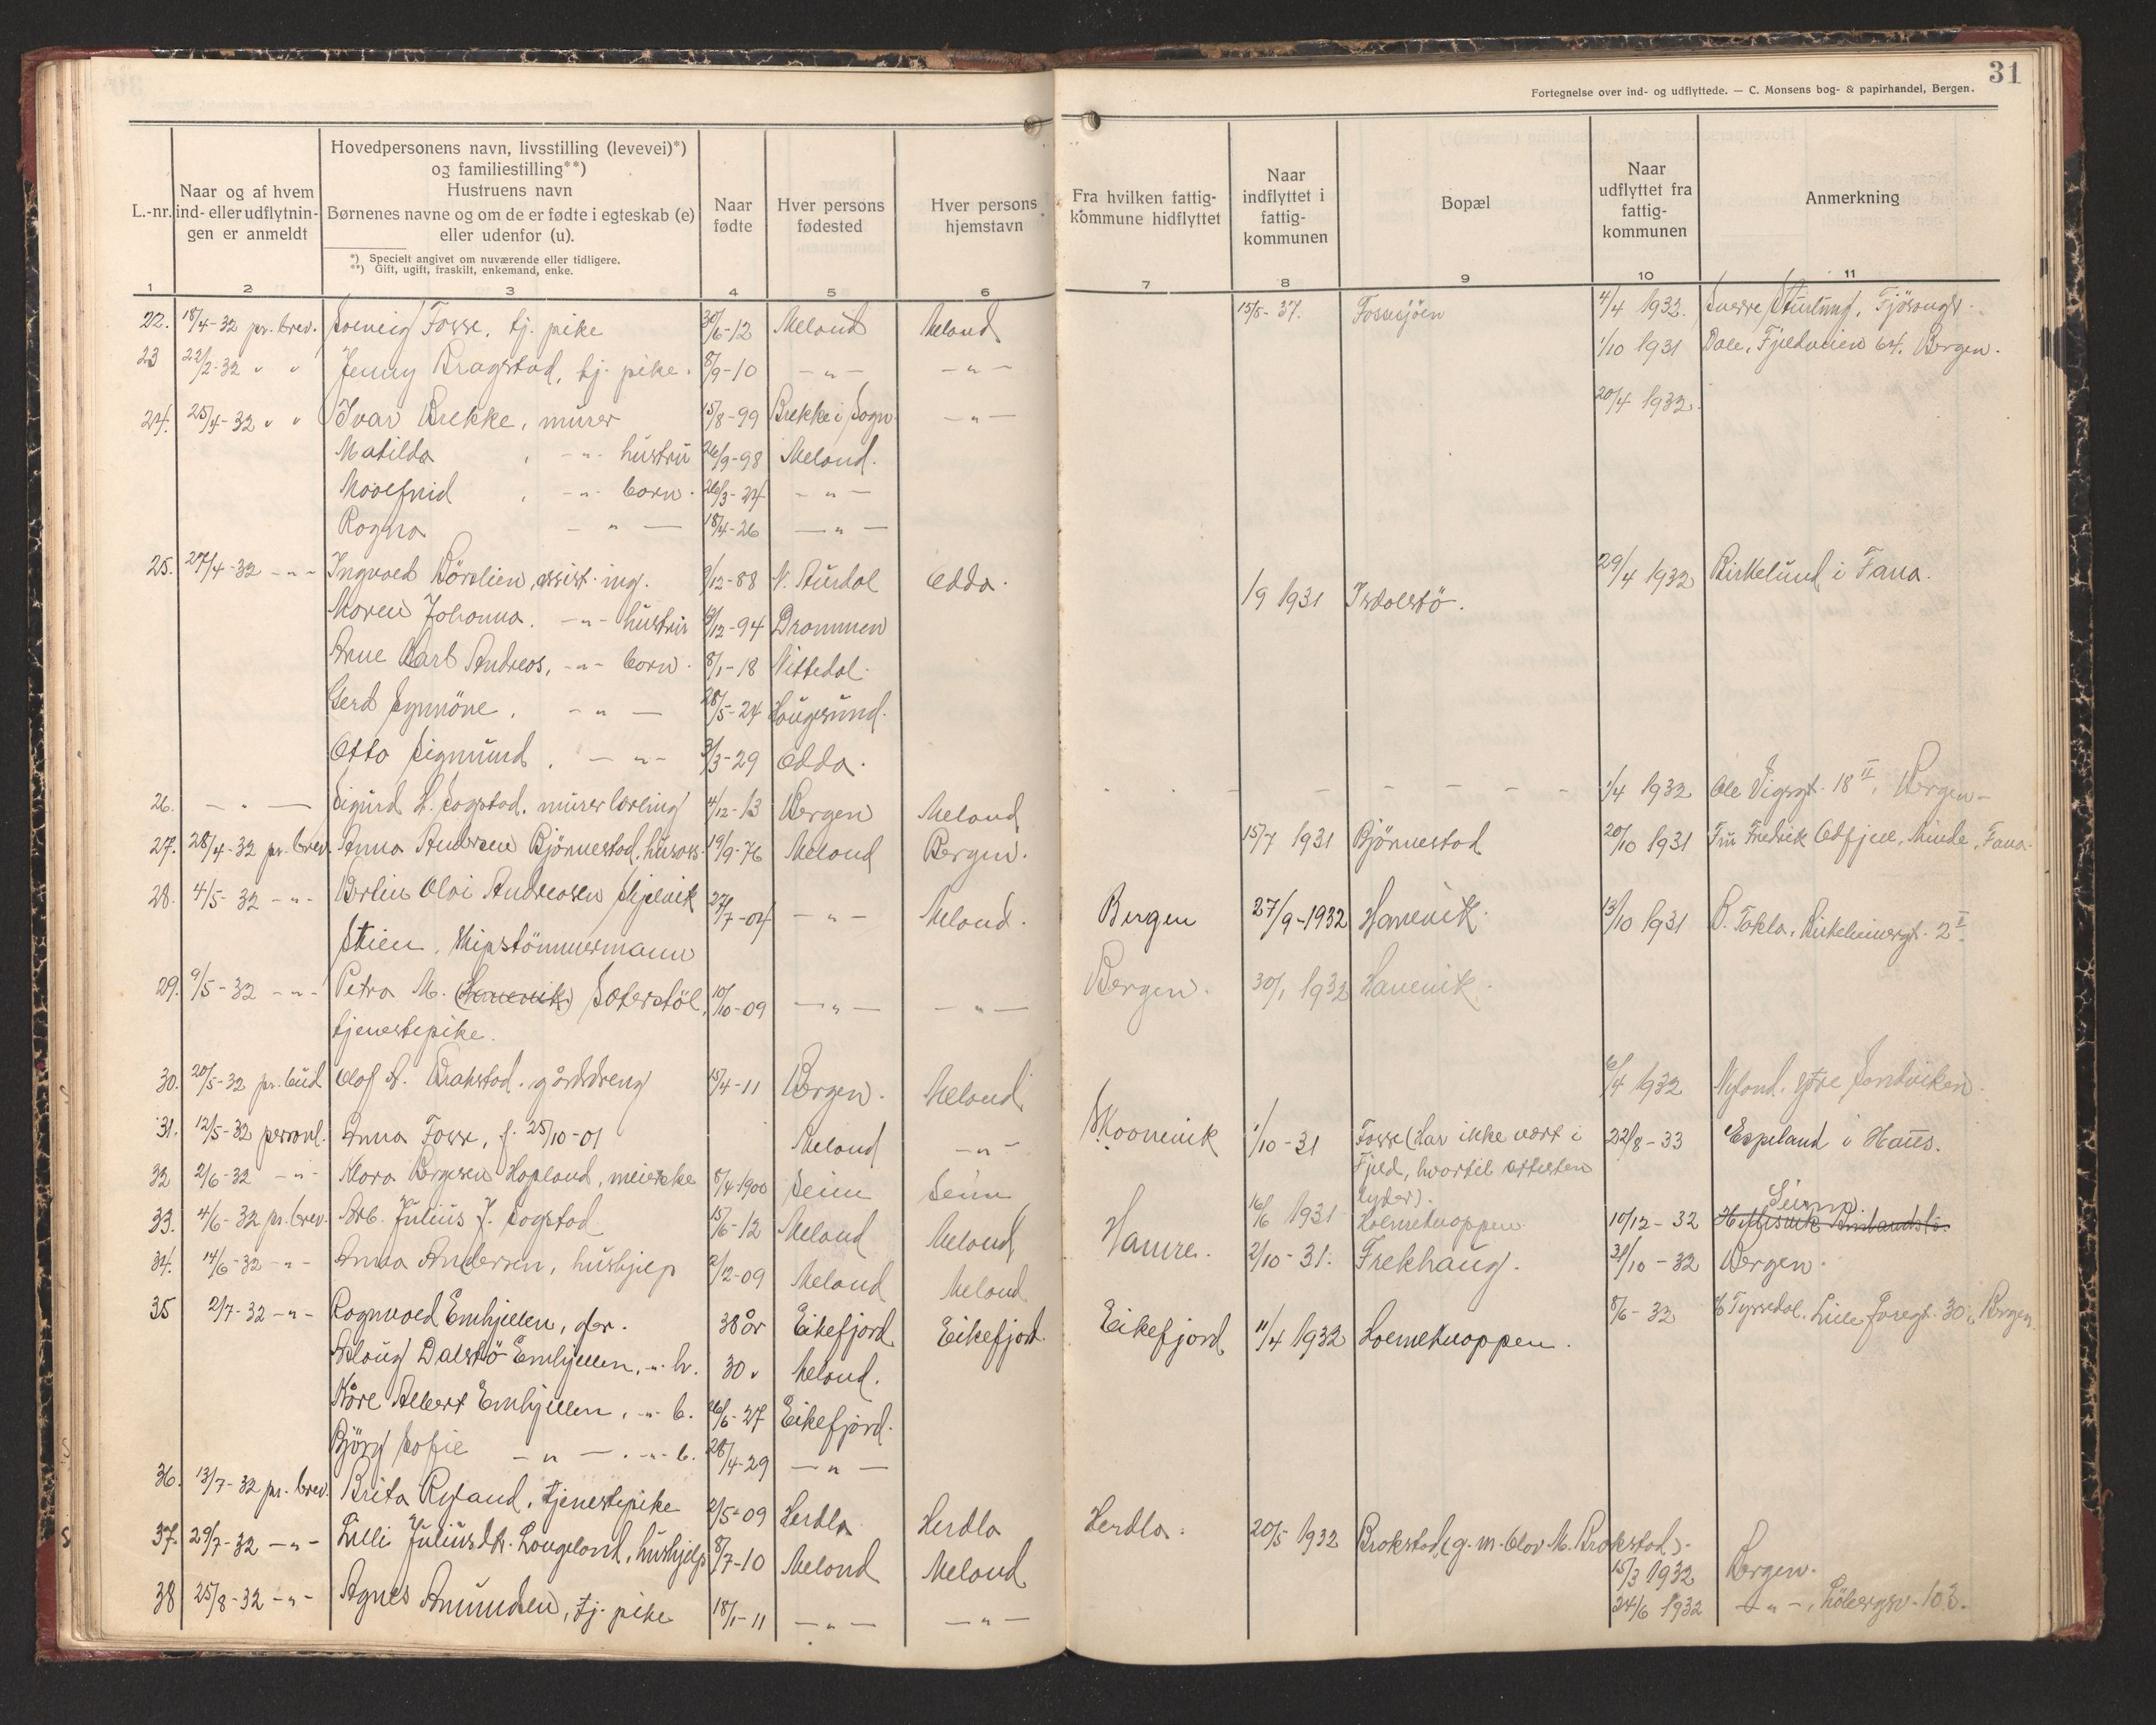 31
Fortegnelse over ind- og udflyttede. — C. Monsens bog- & papirhandel, Bergen.
L.-nr.
Naar og af hvem ind- eller udflytnin- gen er anmeldt
Hovedpersonens navn, livsstilling (levevei)*)
og familiestilling**)
Hustruens navn
Børnenes navne og om de er fødte i egteskab (e)
eller udenfor (u).
*) Specielt angivet om nuværende eller tidligere.
**) Gift, ugift, fraskilt, enkemand, enke.
Naar fødte
Hver persons fødested
Hver persons hjemstavn
Fra hvilken fattig- kommune hidflyttet
Naar indflyttet i fattig- kommunen
Bopæl
Naar udflyttet fra fattig- kommunen
Anmerkning
1 2 3 4 5 6 7 8 9 10 11
22. 18/4-32 pr. brev. Solveig Fosse, tj. pike 30/6-12 Meland Meland 15/5-37. Fossesjöen 4/4 1932. Sverre
23 22/2-32 " " Jenny Bragstad, tj. pike. 8/9-10 -"- -"- 1/10 1931 Dale, Fjeldveien 64, Bergen.
24. 25/4-32 " " Ivar Brekke, murer 15/8-99 Brekke i Sogn -"- 20/4 1932.
Matilda , -"- hustru 26/9-98 Meland.
, -"- barn. 26/3-24 -"-
Ragna -"- 18/4-26 -"-
25. 27/4-32 -"- Ingvald assist. ing. 9/12-88 N. Aurdal Odda. 1/9 1931 Isdalstö. 29/4 1932 Birkelund i Fana.
Maren Johanna. -"- hustru 13/12-94 Drammen
Arne Karl Andreas, -"- barn. 8/1-18 Nittedal.
Gerd Synnöve. -"- 28/5-24 Haugesund.
Otto Sigmund. -"- 3/3-29 Odda.
26. -"- Sigurd H. Sagstad, murerlærling 4/12-13 Bergen Meland - - - - - - - 1/4 1932 Ole Vigsgt. 18 II, Bergen-
27. 28/4-32 pr. brev. Anna Andersen Björnestad, husass. 19/9-76 Meland Bergen. 15/7 1931 Björnestad 20/10 1931 Fru Fredrik Odfjell, Minde, Fana.
28. 4/5-32 -"- Berlin Olai Andreasen Skjelvik 27/7-04 -"- Meland. Bergen 27/9-1932 Hanevik. 13/10 1931 B. Tokla, 2 II.
Stien. Skipstömmermann
29. 9/5-32 -"- Petra M. (Hanevik) Sæterstöl, 10/10-09 -"- -"- Bergen. 30/1 1932 Hanevik.
tjenestepike.
30. 20/5-32 pr. bud Olaf A. Brakstad. gårdsdreng 15/4-11 Bergen. Meland 6/4 1932 Nyland. ytre Sandviken.
31. 12/5-32 personl. Anna Fosse, f. 25/10-01 Meland -"- Skaanevik 1/10-31 Fosse (Har ikke vært i 22/8-33 Espeland i Haus.
Fjeld, hvortil attesten
lyder).
32 2/6-32 -"- Klara Bergesen Hopland, meierske 8/4-1900 Seim Seim Hamre. 16/6 1931 Holmeknappen. 10/12-32 Seim.
33. 4/6-32 pr. brev. Arb. Julius J. Sagstad 15/6-12 Meland Meland 2/10-31. Frekhaug. 31/10-32 Bergen.
34. 14/6-32 -"- Anna Andersen, hushjelp 2/2-09 Meland Meland 8/6-32 Tyssedal. Lille 30, Bergen
35 2/7-32 -"- Ragnvald Emhjellen, gbr. 38 år Eikefjord Eikefjord. Eikefjord 11/4 1932 Holmeknappen.
Aslaug Dalstö Emhjellen, -"- h. 30 " Meland.
Kåre Albert Emhjellen, -"- b. 26/6-27 Eikefjord.
Björg Sofie -"-. -"- b. 28/4-29 -"-
36. 13/7-32 pr. brev. Brita Ryland, tjenestepike 2/5-09 Herdla Herdla Herdla. 20/5 1932 Brakstad, (g. m. Olav M. Brakstad).
37. 29/7-32 -"- Lilli Juliusdtr. Langeland, hushjelp 8/7-10 Meland Meland 15/3 1932 Bergen.
38 25/8-32 -"- Agnes Amundsen, tj. pike 18/1-11 -"- -"- 24/6 1932 -"-, 103.